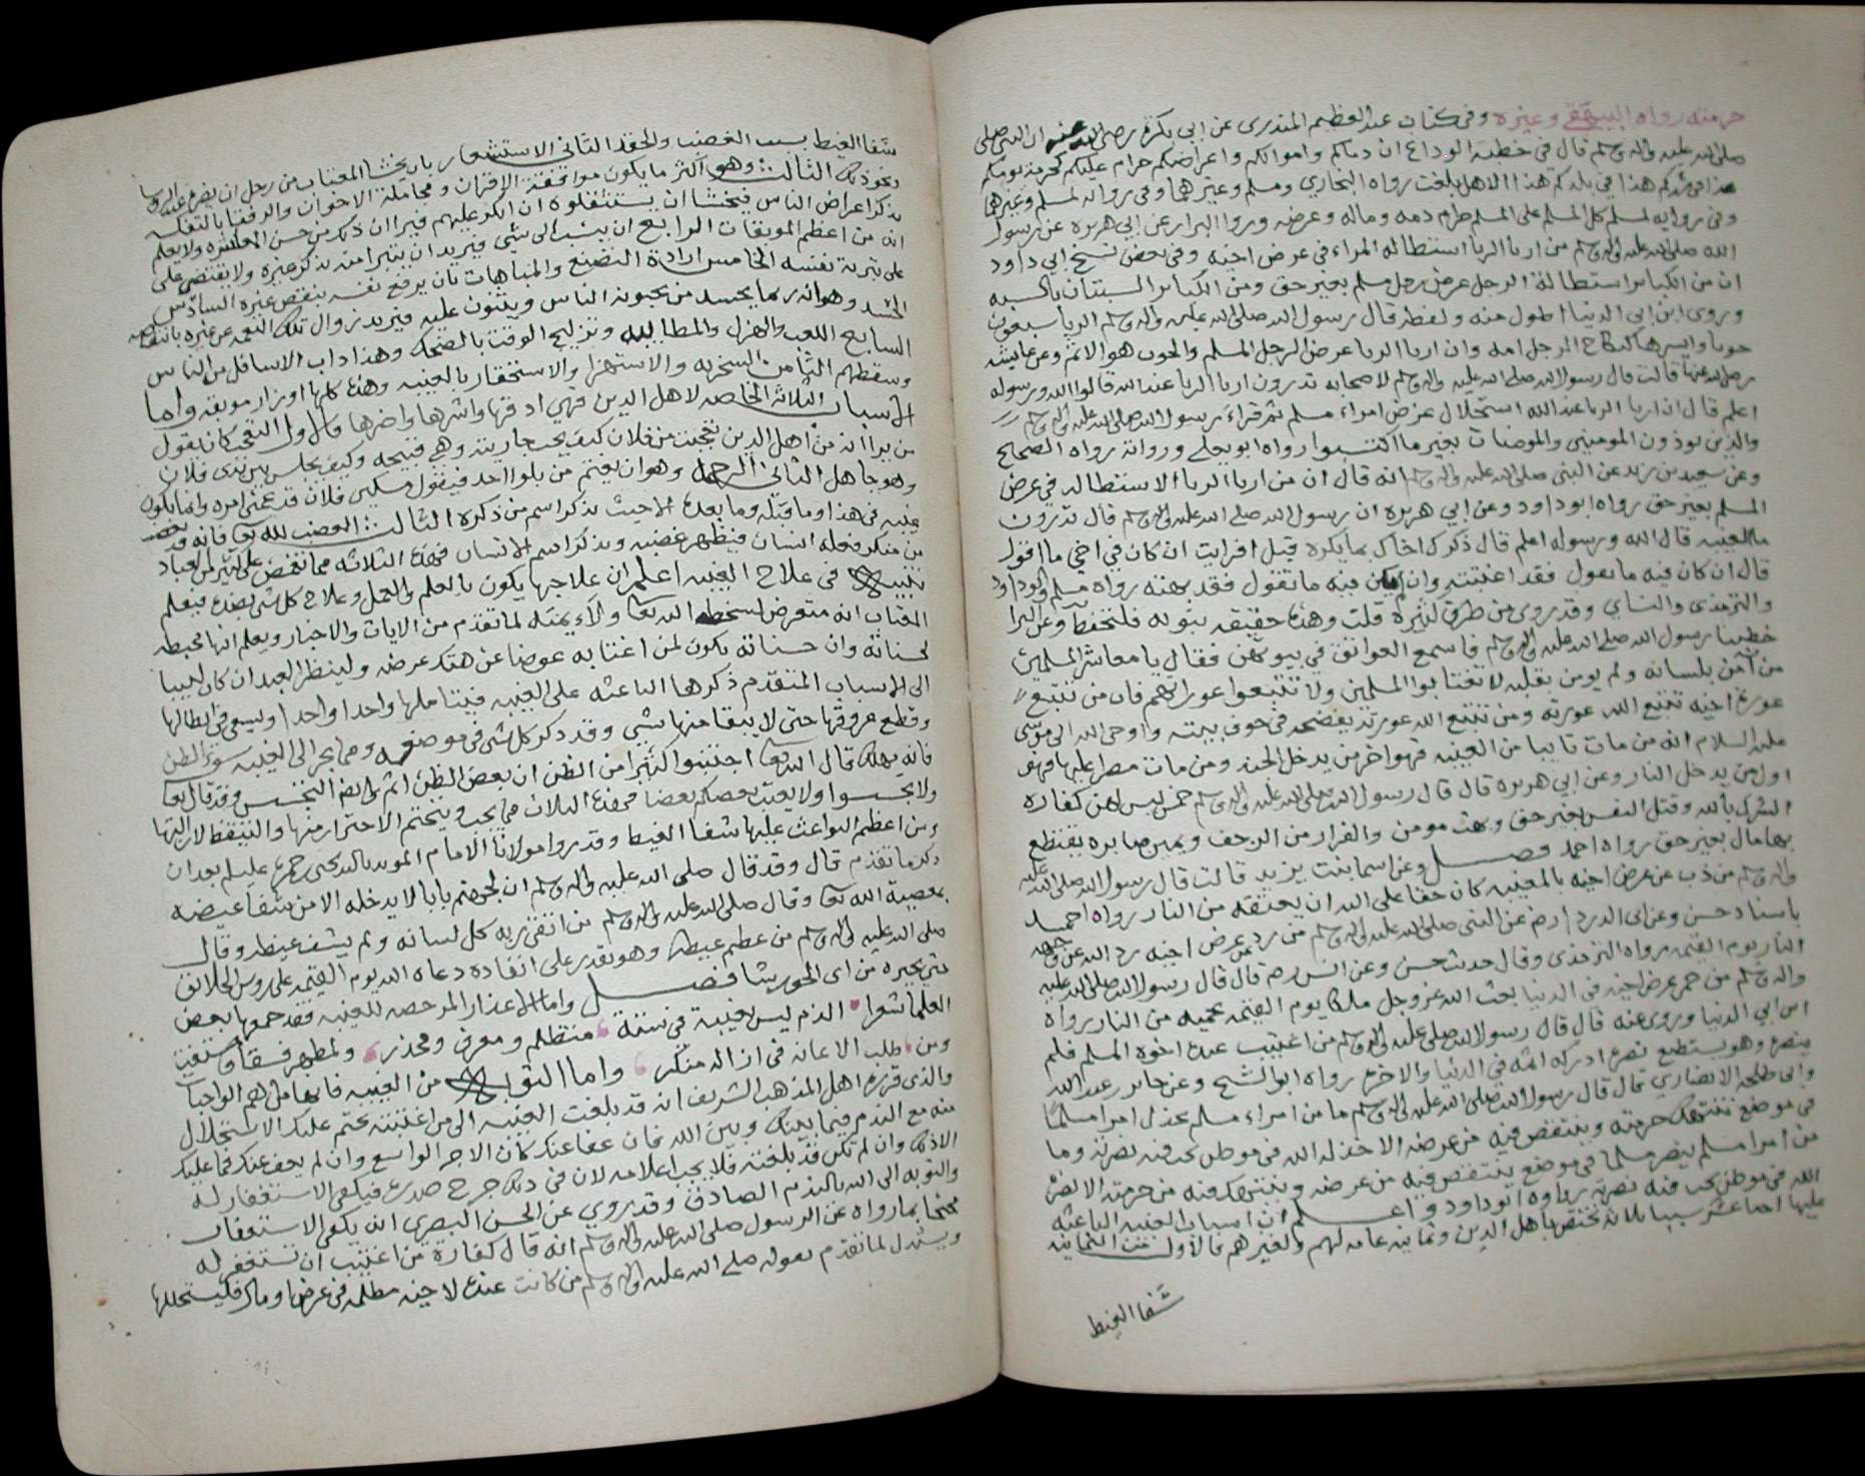 حرمته رواه البيهقي وغيره وفي كتاب عبد العظيم المنذري عن ابي بكرة رضي الله عنه ان النبي صلى
صلى الله عليه واله وسلم قال في خطبة الوداع ان دماكم واموالكم واعراضكم حرام عليكم كحرمة يومكم
هذا في شهركم هذا في بلدكم هذا الا هل بلغت رواه البخاري ومسلم وغيرهما وفي رواية لمسلم وغيرهما
وفي رواية لمسلم كل المسلم على المسلم حرام دمه وماله وعرضه وروا البزار عن ابي هريره عن رسول
الله صلى الله عليه واله وسلم من اربا الربا استطالة المراء في عرض اخيه وفي بعض نسخ ابي داود
ان من الكباير استطالة الرجل عرض رجل مسلم بغير حق ومن الكباير السبتان بالسبه
وروى ابن ابي الدنيا اطول منه ولفظه قال رسول الله صلى الله عليه واله وسلم الربا سبعون
حوبا وايسرها كنكاح الرجل امه وان اربا الربا عرض الرجل المسلم والحوب هو الاثم وعن عايشه
رضي الله عنها قالت قال رسول الله صلى الله عليه واله وسلم لاصحابه تدرون اربا الربا عند الله قالوا الله ورسوله
اعلم قال ان اربا الربا عند الله استحلال عرض امراء مسلم ثم قراء رسول الله صلى الله عليه واله وسلم
والذين يوذون المومنين والمومنات بغير ما اكتسبوا رواه ابو يعلى ورواته رواه الصحيح
وعن سعيد بن زيد عن النبي صلى الله عليه واله وسلم انه قال ان من اربا الربا الاستطاله في عرض
المسلم بغير حق رواه ابو داود وعن ابي هريره ان رسول الله صلى الله عليه واله وسلم قال تدرون
ما الغيبه قال الله ورسوله اعلم قال ذكرك اخاك بما يكره قيل افرايت ان كان في اخي ما اقول
قال ان كان فيه ما تقول فقد اغتبته وان لم يكن فيه ما تقول فقد بهته رواه مسلم وابو داود
والترمذي والنساي وقد روي من طرق كثيرة قلت وهذه حقيقه نبويه فلتحفظ وعن البرا
خطبنا رسول الله صلى الله عليه واله وسلم فاسمع العواتق في بيوتهن فقال يا معاشر المسلمين
من آمن بلسانه ولم يومن بقلبه لا تغتابوا المسلمين ولا تتبعوا عوراتهم فان من تتبع
عورة اخيه تتبع الله عورته ومن تتبع الله عورته يفضحه في جوف بيته واوحى الله الى موسى
عليه السلام انه من مات تايبا من الغيبه فهو اخر من يدخل الجنه ومن مات مصرا عليها فهو
اول من يدخل النار وعن ابي هريره قال قال رسول الله صلى الله عليه واله وسلم خمس ليس لهن كفاره
الشرك بالله وقتل النفس بغير حق وبهت مومن والفرار من الزحف ويمين صابره يقتطع
بها مال بغير حق رواه احمد فصل وعن اسما بنت يزيد قالت قال رسول الله صلى الله عليه
واله وسلم من ذب عن عرض اخيه بالغيبه كان حقا على الله ان يعتقه من النار رواه احمد
باسناد حسن وعن ابي الدردا رضي عن النبي صلى الله عليه واله وسلم من رد عن عرض اخيه رد الله عن وجهه
النار يوم القيمه رواه الترمذي وقال حديث حسن وعن انس رضي قال قال رسول الله صلى الله عليه
واله وسلم من حمى عرض اخيه في الدنيا بعث الله عز وجل ملكا يوم القيمه يحميه من النار رواه
ابن ابي الدنيا وروي عنه قال قال رسول الله صلى عليه واله وسلم من اغتيب عنده اخوه المسلم فلم
ينصره وهو يستطيع نصره ادركه اثمه في الدنيا والاخره رواه ابو الشيخ وعن جابر بن عبد الله
وابي طلحه الانصاري قال قال رسول الله صلى الله عليه واله وسلم ما من امراء مسلم يخذل امرا مسلما
في موضع تنتهك حرمته وينتقص فيه من عرضه الا خذله الله في موطن يحب فيه نصرته وما
من امرا مسلم ينصر مسلما في موضع ينتقص فيه من عرضه وينتهك فيه من حرمته الا نصره
الله في موطن يحب فيه نصرته رواه ابو داود واعلم ان اسباب الغيبه الباعثه
عليها احد عشر سببا ثلاثه تختص باهل الدين وثمانيه عامه لهم ولغيرهم فالاول من الثمانيه
شفا الغيظ
شفا الغيظ بسبب الغضب والحقد الثاني الاستشعار بان يخشا المغتاب من رجل ان يضر عند الروسا
ونحو ذلك الثالث وهو اكثر ما يكون موافقة الاقران ومجاملة الاخوان والرفقا بالتفكه
بذكر اعراض الناس فيخشا ان يستثقلوه ان انكر عليهم فيرا ان ذلك من حسن المعاشره ولا يعلم
انه من اعظم الموبقات الرابع ان ينسب الى شي فيريد ان يتبرا منه بذكر غيره ولا يقتصر على
على تبرية نفسه الخامس ارادة التصنع والمباهات بان يرفع نفسه بنقص غيره السادس
الحسد وهو انه ربما يحسد من يحبونه الناس ويثنون عليه فيريد زوال تلك النعمه عن غيره بانتقاصه
السابع اللعب والهزل والمطايبه وتزليج الوقت بالضحك وهذا داب الاسافل من الناس
وسقطهم الثامن السخريه والاستهزا والاستحقار بالغيبه وهذه كلها اوزار موبقه واما
الاسباب الثلاثه الخاصه لاهل الدين فهي ادقها واشرها واضرها فالاول التعجب كان يقول
من يرا انه من اهل الدين تعجبت من فلان كيف يحب جاريته وهي قبيحه وكيف يجلس بين يدي فلان
وهو جاهل الثاني الرحمه وهو ان يغتم من بلوا احد فيقول مسكين فلان قد غمني امره وانما يكون
غيبه في هذا وما قبله وما بعده الا حيث يذكر اسم من ذكره الثالث الغضب لله تعالى فانه قد يغضب
من منكر فعله انسان فيظهر غضبه ويذكر اسم الانسان فهذه الثلاثه مما تغمض على كثير من العباد
تنبيه في علاج الغيبه اعلم ان علاجها يكون بالعلم والعمل وعلاج كل شي بضده فيعلم
المغتاب انه متعرض لسخط الله تعالى لما تقدم من الايات والاخبار ويعلم انها محبطه
لحسناته وان حسناته تكون لمن اغتابه عوضا عن هتك عرضه ولينظر العبد ان كان لبيبا
الى الاسباب المتقدم ذكرها الباعثه على الغيبه فيتاملها واحدا واحدا ويسعى في ابطالها
وقطع عروقها حتى لا يبقا منها شي وقد ذكر كل شي في موضعه ومما يجر الى الغيبه سوء الظن
فانه يهلك قال الله تعالى اجتنبوا كثيرا من الظن ان بعض الظن اثم ثم التجسس وقد قال تعالى
ولا تجسسوا ولا يغتب بعضكم بعضا فهذه الثلاث مما يجب ويتحتم الاحتراز منها والتيقظ لازالتها
ومن اعظم البواعث عليها شفا الغيظ وقد روا مولانا الامام المويد بالله يحيى بن حمزه عليلم بعد ان
ذكر ما تقدم قال وقد قال صلى الله عليه واله وسلم ان لجهنم بابا لا يدخله الا من شفا غيضه
بمعصية الله تعالى وقال صلى الله عليه واله وسلم من اتقى ربه كل لسانه ولم يشف غيظه وقال
صلى الله عليه واله وسلم من كظم غيظه وهو يقدر على انفاذه دعاه الله يوم القيمه على روس الخلائق
حتى يخيره من اي الحور يشا فصل واما الاعذار المرخصه للغيبه فقد جمعها بعض
العلما شعرا الذم ليس بغيبة في ستة متظلم ومعرف ومحذر ولمظهر فسقا ومستفت
ومن طلب الاعانه في ازالة منكر واما التوبه من الغيبه فانها من اهم الواجبات
والذي قرره اهل المذهب الشريف انه قد بلغت الغيبه الى من اغتبته تحتم عليك الاستحلال
منه مع الندم فيما بينك وبين الله فان عفا عنك كان الاجر الواسع وان لم يعف عنك فما عليك
الا ذلك وان لم تكن قد بلغته فلا يجب اعلامه لان في ذلك جرح صدره فيكفي الاستغفار له
والتوبه الى الله بالندم الصادق وقد روي عن الحسن البصري انه يكفي الاستغفار
محتجا بما رواه عن الرسول صلى الله عليه واله وسلم انه قال كفارة من اغتيب ان تستغفر له
ويستدل لما تقدم بقوله صلى الله عليه واله وسلم من كانت عنده لاخيه مظلمه في عرض او مال فليستحللها